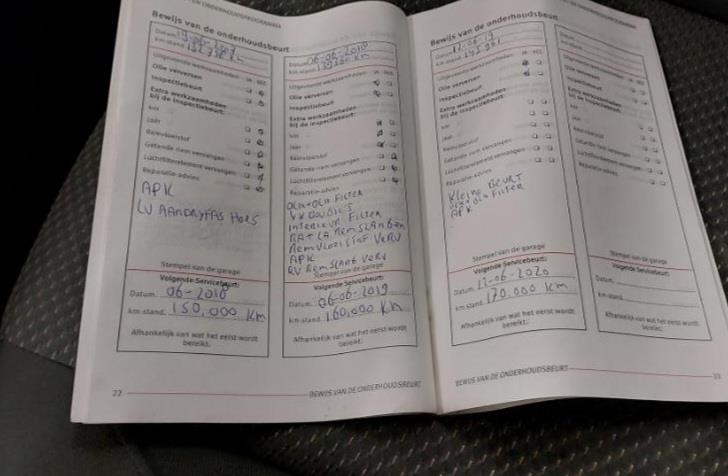 Bewijs van de onderhoudsbeurt
Datum
km-stand
Uitgevoerde werkzaamheden: JA NEE
Olie verversen
Inspectiebeurt
Extra werkzaamheden
bij de inspectiebeurt:
km
jaar
Remvloeistof
Getande riem vervangen
Luchtfilterelement vervangen
Reparatie-advies
APK
LV AANDRYFAS HOES
Stempel van de garage
Volgende Servicebeurt:
Datum. 06-2018
km-stand. 150.000 Km
Afhankelijk van wat het eerst wordt
bereikt.
22
Datum 06-06-2018
km-stand
Uitgevoerde werkzaamheden: JA NEE
Olie verversen
Inspectiebeurt
Extra werkzaamheden
bij de inspectiebeurt:
km
jaar
Remvloeistof
Getande riem vervangen
Luchtfilterelement vervangen
Reparatie-advies
Olie + Olie FILTER
Interieur FILTER
Remvloeistof VERV
APK
Stempel van de garage
Volgende Servicebeurt:
Datum. 06-06-2019
km-stand. 160.000 Km
Afhankelijk van wat het eerst wordt
bereikt.
BEWIJS VAN DE ONDERHOUDSBEURT
Bewijs van de onderhoudsbeurt
Datum 12-06-19
km-stand
Uitgevoerde werkzaamheden: JA NEE
Olie verversen
Inspectiebeurt
Extra werkzaamheden
bij de inspectiebeurt:
km
jaar
Remvloeistof
Getande riem vervangen
Luchtfilterelement vervangen
Reparatie-advies
Kleine BEURT
Olie + Olie FILTER
APK
Stempel van de garage
Volgende Servicebeurt:
Datum. 12-06-2020
km-stand. 170.000 Km
Afhankelijk van wat het eerst wordt
bereikt.
BEWIJS VAN DE ONDERHOUDSBEURT
Datum
km-stand
Uitgevoerde werkzaamheden: JA NEE
Olie verversen
Inspectiebeurt
Extra werkzaamheden
bij de inspectiebeurt:
km
jaar
Remvloeistof
Getande riem vervangen
Luchtfilterelement vervangen
Reparatie-advies
Stempel van de garage
Volgende Servicebeurt:
Datum.
km-stand.
Afhankelijk van wat het eerst wordt
bereikt.